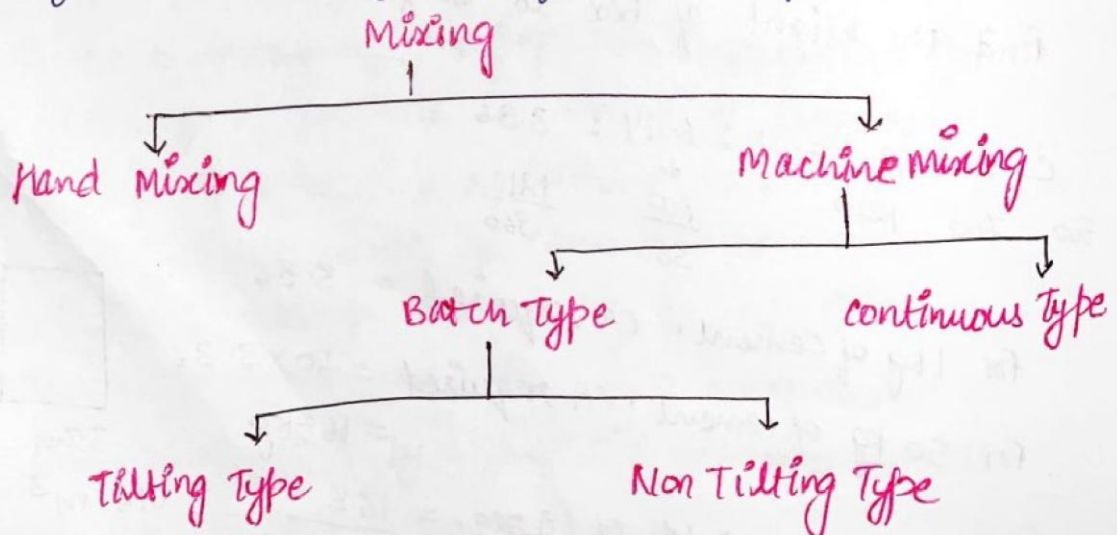 Mixing
Hand Mixing
Machine Mixing
Batch Type
continuous Type
Tilting Type
Non Tilting Type